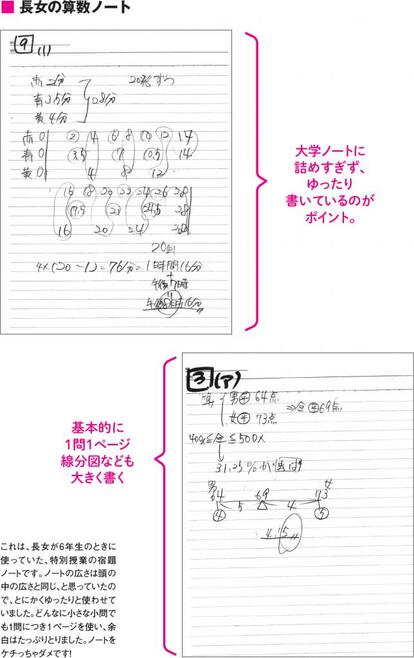 ■ 長女の算数ノート
9 (1)
赤2分
青3.5分
黄4分
28分
赤 0 2 4 6 8 10 12 14
青 0 3.5 7 10.5 14
黄 0 4 8 12
16 18 20 22 24 26 28
17.5 21 24.5 28
16 20 24 28
20回
4×(20-1)=76分=1時間16分
大学ノートに
詰めすぎず、
ゆったり
書いているのが
ポイント。
基本的に
1問1ページ
線分図なども
大きく書く
3 (ア)
男 64点
女 73点
69点
31.25%
男 女
64 69 73
4 5 4 5
これは、長女が6年生のときに
使っていた、特別授業の宿題
ノートです。ノートの広さは頭の
中の広さと同じ、と思っていたの
で、とにかくゆったりと使わせて
いました。どんなに小さな小問で
も1問につき1ページを使い、余
白はたっぷりとりました。ノートを
ケチっちゃダメです!